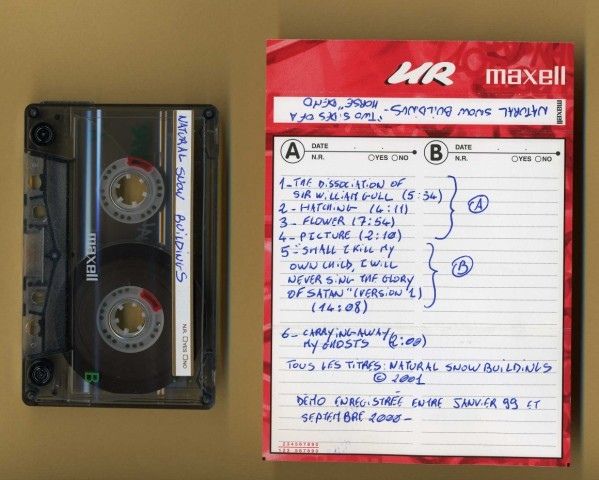 NATURAL SNOW BUILDINGS
maxell
N.R. □YES □NO
B
UR maxell
maxell
NATURAL SNOW BUILDINGS-
"TWO SIDES OF A
HORSE" DEMO
A DATE . .
N.R. ○YES ○NO
B DATE . .
N.R. ○YES ○NO
1- THE DISSOCIATION OF
SIR WILLIAM GULL (5:34)
2- HATCHING (4:11)
3- FLOWER (7:54)
4- PICTURE (2:10)
A
5- "SHALL I KILL MY
OWN CHILD, I WILL
NEVER SING THE GLORY
OF SATAN" (VERSION 1)
(14:08)
B
6- CARRYING-AWAY
MY GHOSTS (2:00)
TOUS LES TITRES: NATURAL SNOW BUILDINGS
© 2001
DEMO ENREGISTRÉE ENTRE JANVIER 99 ET
SEPTEMBRE 2000-